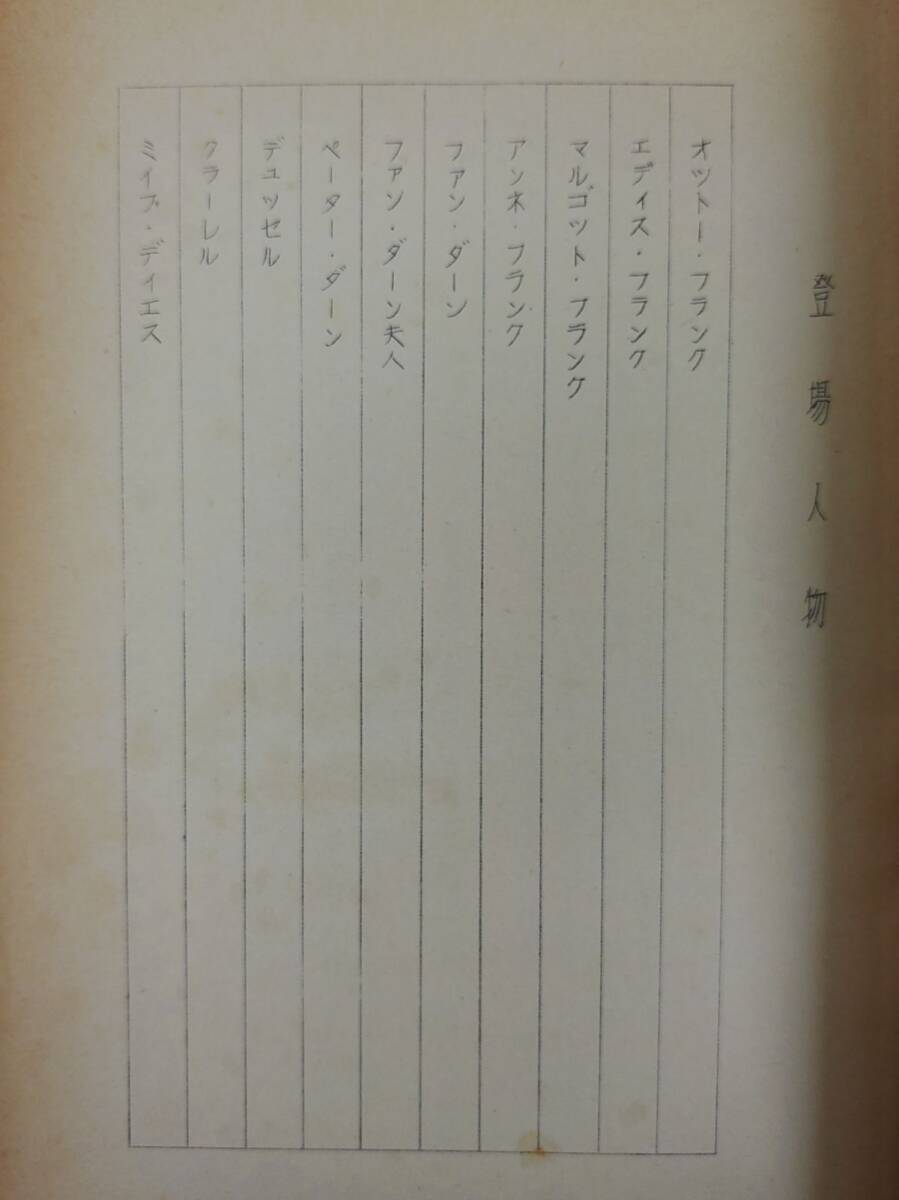 登場人物
オットー・フランク
エディス・フランク
マルゴット・フランク
アンネ・フランク
ファン・ダーン
ファン・ダーン夫人
ペーター・ダーン
デュッセル
クラーレル
ミイプ・ディエス